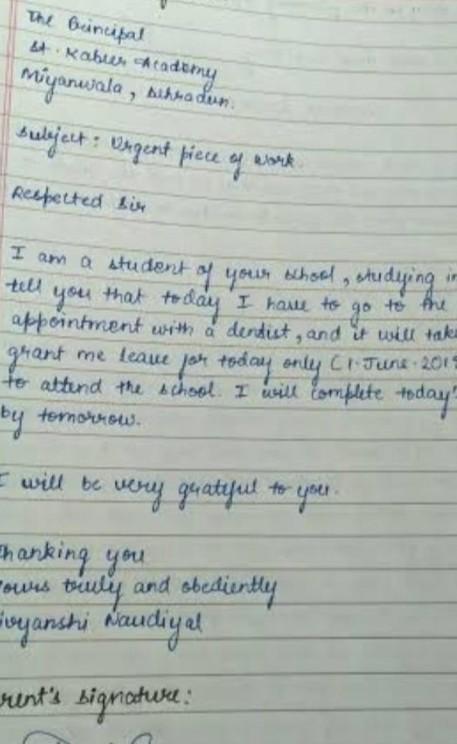 The Principal
St. Kabeer Academy
Miyanwala, Dehradun.
Subject: Urgent piece of work.
Respected Sir
I am a student of your school, studying in
tell you that today I have to go to the
appointment with a dentist, and it will take
grant me leave for today only (1.June.2019
to attend the school. I will complete today's
by tomorrow.
I will be very grateful to you.
hanking you
ours truly and obediently
ivyanshi Naudiyal
rent's signature: